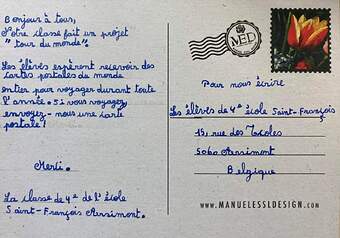 Bonjour à tous,
Notre classe fait un projet
"tour du monde".
Les élèves espèrent recevoir des
cartes postales du monde
entier pour voyager durant toute
l'année. Si vous voyagez,
envoyez-nous une carte
postale!
Merci.
La classe de 4e de l'école
Saint-François Aersimont.
MED
Pour nous écrire
Les élèves de 4e école Saint-François
15, rue des
5060 Arsimont
Belgique
WWW.MANUELESSLDESIGN.COM